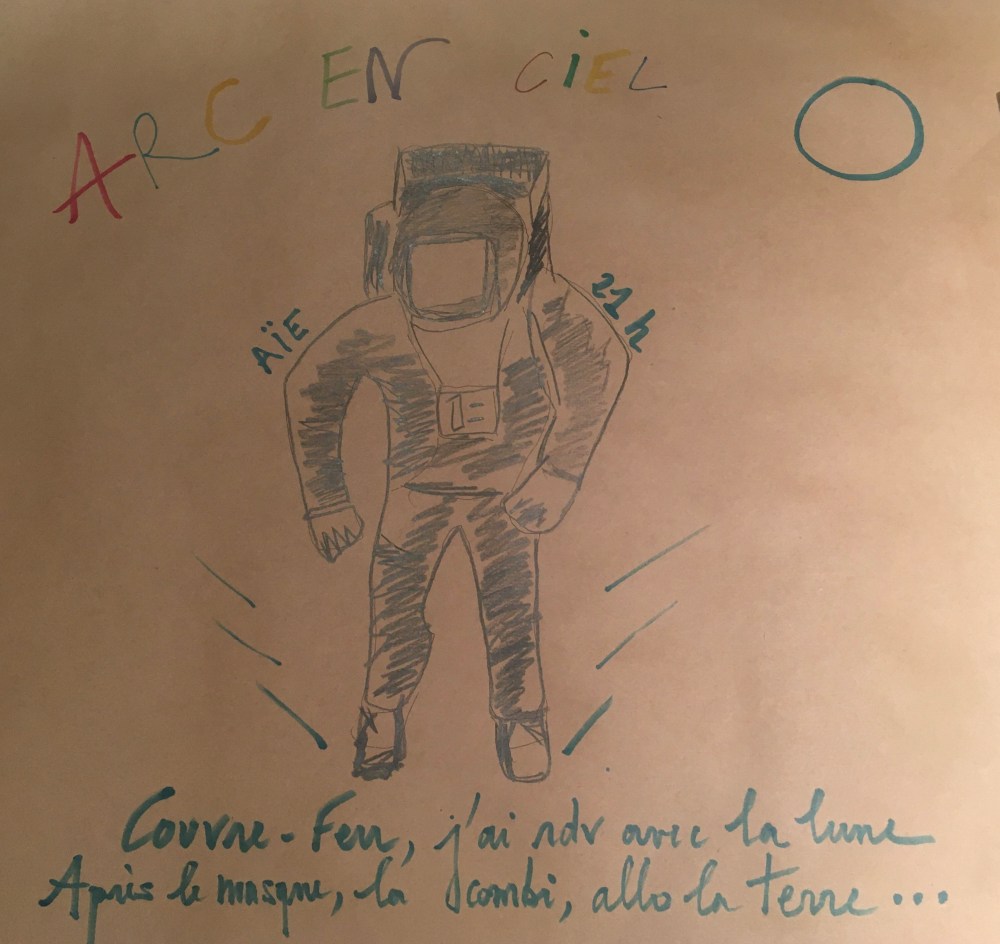 ARC EN CIEL
AÏE
21h
Couvre-Feu, j'ai rdv avec la lune
Après le masque, la combi, allo la terre...